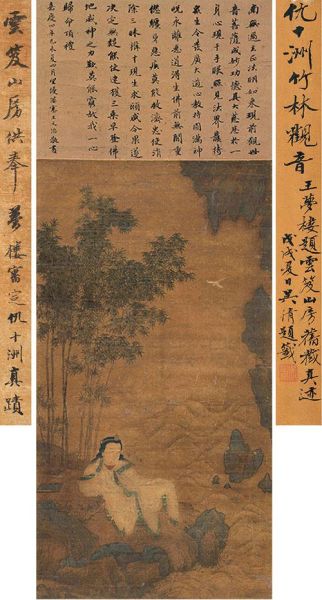 仇十洲竹林觀音
王夢樓題雲笈山房舊藏真迹
戊戌夏日吳題籤
南無過去正法明如來現前觀世
音菩薩成妙功德具大慈悲於一
身心現千手眼照見法界護持
衆生令發廣大道心教持圓滿神
呪永離惡道得生佛前無間重
愆纏身惡疾莫能救濟悉使消
除三昧辯才現生求願咸令果遂
決定無疑能使速獲三乘早登佛
地威神之力歎莫能窮故我一心
歸命頂禮
嘉慶四年己未夏四月望優婆塞王文治敬書
雲笈山房供奉 夢樓審定仇十洲真蹟